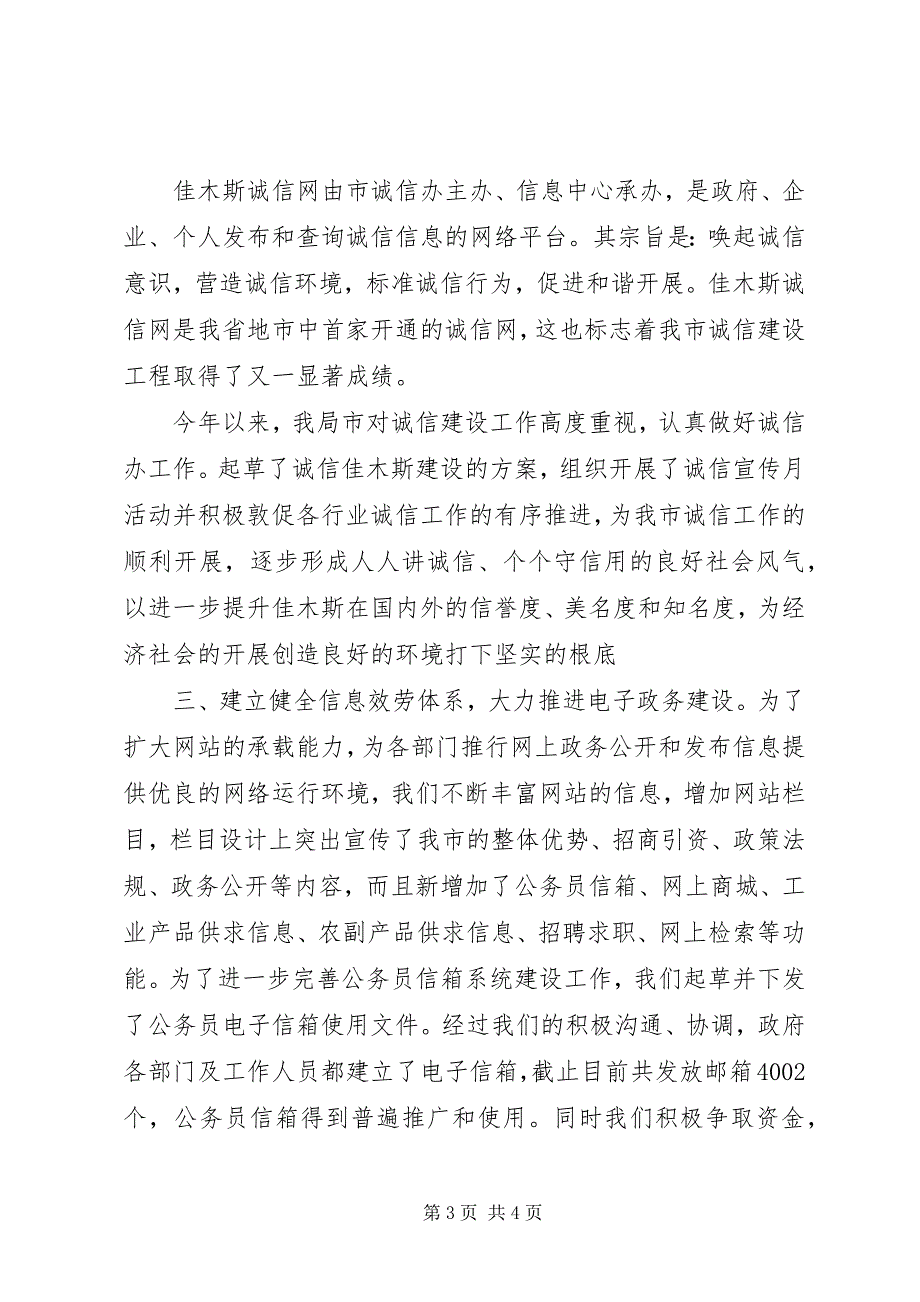 佳木斯诚信网由市诚信办主办、信息中心承办，是政府、企
业、个人发布和查询诚信信息的网络平台。其宗旨是：唤起诚信
意识，营造诚信环境，标准诚信行为，促进和谐开展。佳木斯诚
信网是我省地市中首家开通的诚信网，这也标志着我市诚信建设
工程取得了又一显著成绩。
今年以来，我局市对诚信建设工作高度重视，认真做好诚信
办工作。起草了诚信佳木斯建设的方案，组织开展了诚信宣传月
活动并积极敦促各行业诚信工作的有序推进，为我市诚信工作的
顺利开展，逐步形成人人讲诚信、个个守信用的良好社会风气，
以进一步提升佳木斯在国内外的信誉度、美名度和知名度，为经
济社会的开展创造良好的环境打下坚实的根底
三、建立健全信息效劳体系，大力推进电子政务建设。为了
扩大网站的承载能力，为各部门推行网上政务公开和发布信息提
供优良的网络运行环境，我们不断丰富网站的信息，增加网站栏
目，栏目设计上突出宣传了我市的整体优势、招商引资、政策法
规、政务公开等内容，而且新增加了公务员信箱、网上商城、工
业产品供求信息、农副产品供求信息、招聘求职、网上检索等功
能。为了进一步完善公务员信箱系统建设工作，我们起草并下发
了公务员电子信箱使用文件。经过我们的积极沟通、协调，政府
各部门及工作人员都建立了电子信箱，截止目前共发放邮箱4002
个，公务员信箱得到普遍推广和使用。同时我们积极争取资金，
第3页 共4页